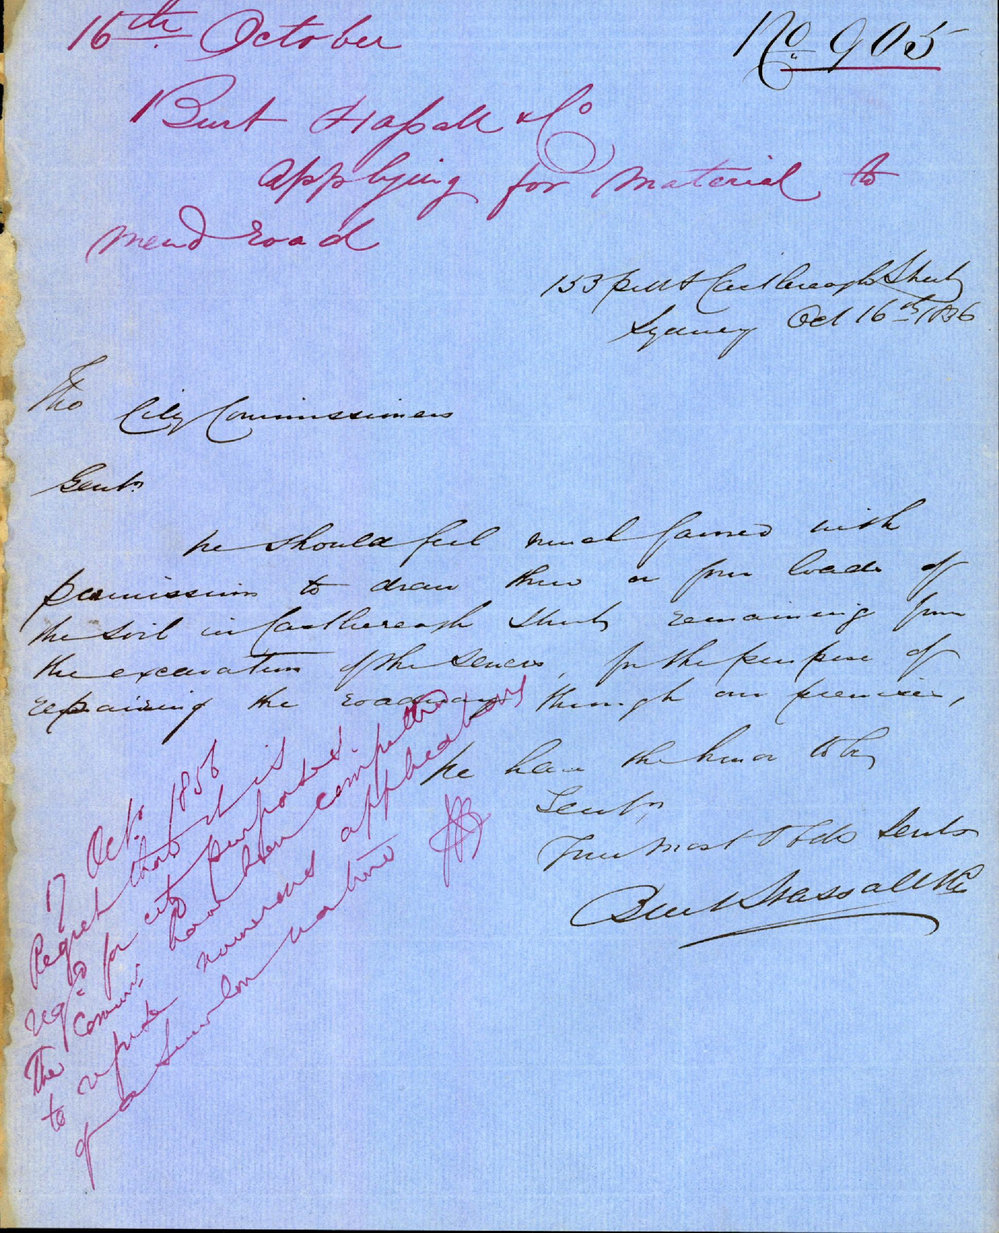 16th October
No. 905
Burt Hassall & Co
applying for material to
mend road
153 Pitt & Castlereagh Streets
Sydney Oct 16th 1856
The City Commissioners
Gents.
We should feel much favored with
permission to draw three or four loads of
the soil in Castlereagh Street remaining from
the excavation of the sewers, for the purpose of
repairing the roadway through our premises,
We have the honor to be,
Gents,
Your Most Obdt Servts
Burt Hassall & Co
17 Octr. 1856
Regret that it is
reqd for city purposes.
The Commrs. have been compelled
to refuse numerous applications
of a similar nature